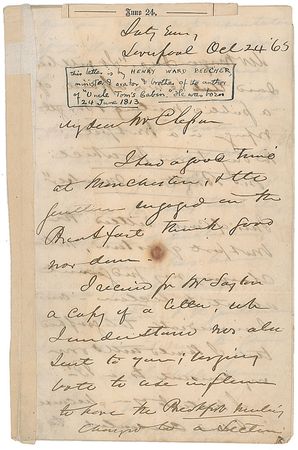 June 24.
Liverpool Oct 24 '63
this letter is by HENRY WARD BEECHER
minister & orator & brother of the author
of "Uncle Tom's Cabin." He was born
24 June 1813
My dear Mr
I had a good time
at Manchester, & the
gentlemen engaged in the
Breakfast think good
was done.
I received fr Mr
a copy of a letter, wh
I understand was also
sent to you, urging
both to use influence
to have the Breakfast meeting
changed to a